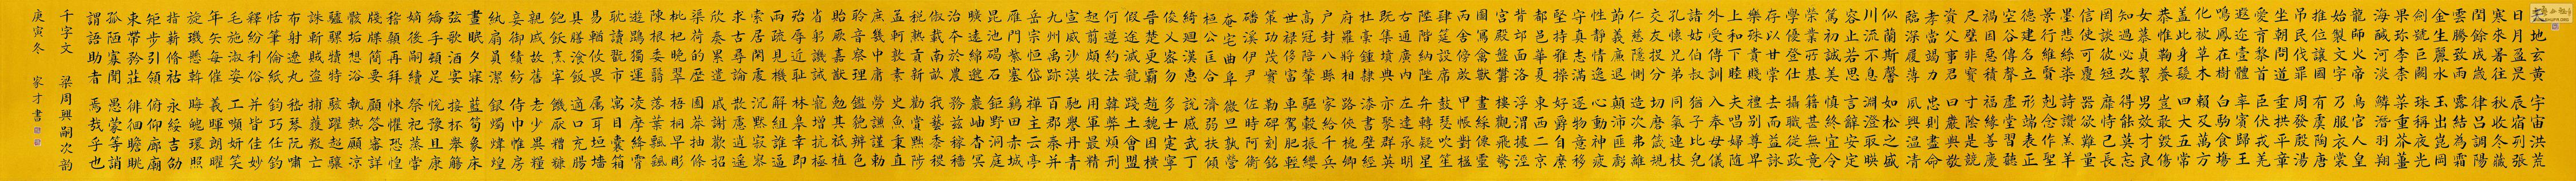 天地玄黃宇宙洪荒
日月盈昃辰宿列張
寒來暑往秋收冬藏
閏餘成歲律呂調陽
雲騰致雨露結為霜
金生麗水玉出崑岡
劍號巨闕珠稱夜光
果珍李柰菜重芥薑
海鹹河淡鱗潛羽翔
龍師火帝鳥官人皇
始制文字乃服衣裳
推位讓國有虞陶唐
弔民伐罪周發殷湯
坐朝問道垂拱平章
愛育黎首臣伏戎羌
遐邇壹體率賓歸王
鳴鳳在樹白駒食場
化被草木賴及萬方
蓋此身髮四大五常
恭惟鞠養豈敢毀傷
女慕貞絜男效才良
知過必改得能莫忘
罔談彼短靡恃己長
信使可覆器欲難量
墨悲絲染詩讚羔羊
景行維賢剋念作聖
德建名立形端表正
空谷傳聲虛堂習聽
禍因惡積福緣善慶
尺璧非寶寸陰是競
資父事君曰嚴與敬
孝當竭力忠則盡命
臨深履薄夙興溫凊
似蘭斯馨如松之盛
川流不息淵澄取映
容止若思言辭安定
篤初誠美慎終宜令
榮業所基籍甚無竟
學優登仕攝職從政
存以甘棠去而益詠
樂殊貴賤禮別尊卑
上和下睦夫唱婦隨
外受傅訓入奉母儀
諸姑伯叔猶子比兒
孔懷兄弟同氣連枝
交友投分切磨箴規
仁慈隱惻造次弗離
節義廉退顛沛匪虧
性靜情逸心動神疲
守真志滿逐物意移
堅持雅操好爵自縻
都邑華夏東西二京
背邙面洛浮渭據涇
宮殿盤鬱樓觀飛驚
圖寫禽獸畫綵仙靈
丙舍傍啟甲帳對楹
肆筵設席鼓瑟吹笙
陞階納陛弁轉疑星
右通廣內左達承明
既集墳典亦聚群英
杜稾鍾隸漆書壁經
府羅將相路俠槐卿
戶封八縣家給千兵
高冠陪輦驅轂振纓
世祿侈富車駕肥輕
策功茂實勒碑刻銘
磻溪伊尹佐時阿衡
奄宅曲阜微旦孰營
桓公匡合濟弱扶傾
綺迴漢惠說感武丁
俊乂密勿多士寔寧
晉楚更霸趙魏困橫
假途滅虢踐土會盟
何遵約法韓弊煩刑
起翦頗牧用軍最精
宣威沙漠馳譽丹青
九州禹跡百郡秦并
岳宗恆岱禪主云亭
雁門紫塞雞田赤城
昆池碣石鉅野洞庭
曠遠綿邈巖岫杳冥
治本於農務茲稼穡
俶載南畝我藝黍稷
稅熟貢新勸賞黜陟
孟軻敦素史魚秉直
庶幾中庸勞謙謹勅
聆音察理鑑貌辯色
貽厥嘉猷勉其祗植
省躬譏誡寵增抗極
殆辱近恥林皋幸即
兩疏見機解組誰逼
索居閑處沉默寂寥
求古尋論散慮逍遙
欣奏累遣慼謝歡招
渠荷的歷園莽抽條
枇杷晚翠梧桐早彫
陳根委翳落葉飄颻
遊鵾獨運凌摩絳霄
耽讀翫市寓目囊箱
易輶攸畏屬耳垣牆
具膳飡飯適口充腸
飽飫烹宰飢厭糟糠
親戚故舊老少異糧
妾御績紡侍巾帷房
紈扇圓潔銀燭煒煌
晝眠夕寐藍筍象床
弦歌酒宴接杯舉觴
矯手頓足悅豫且康
嫡後嗣續祭祀蒸嘗
稽顙再拜悚懼恐惶
牋牒簡要顧答審詳
骸垢想浴執熱願涼
驢騾犢特駭躍超驤
誅斬賊盜捕獲叛亡
布射遼丸嵇琴阮嘯
恬筆倫紙鈞巧任釣
釋紛利俗并皆佳妙
毛施淑姿工顰妍笑
年矢每催羲暉朗曜
璇璣懸斡晦魄環照
指薪修祜永綏吉劭
矩步引領俯仰廊廟
束帶矜莊徘徊瞻眺
孤陋寡聞愚蒙等誚
謂語助者焉哉乎也
千字文 梁周興嗣次韻
庚寅冬 家才書